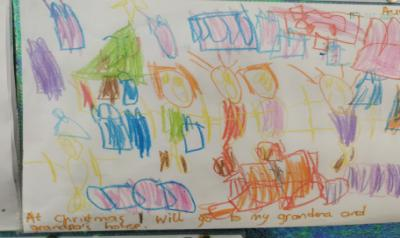 At Christmas I will go to my grandma and
grandpa's house.